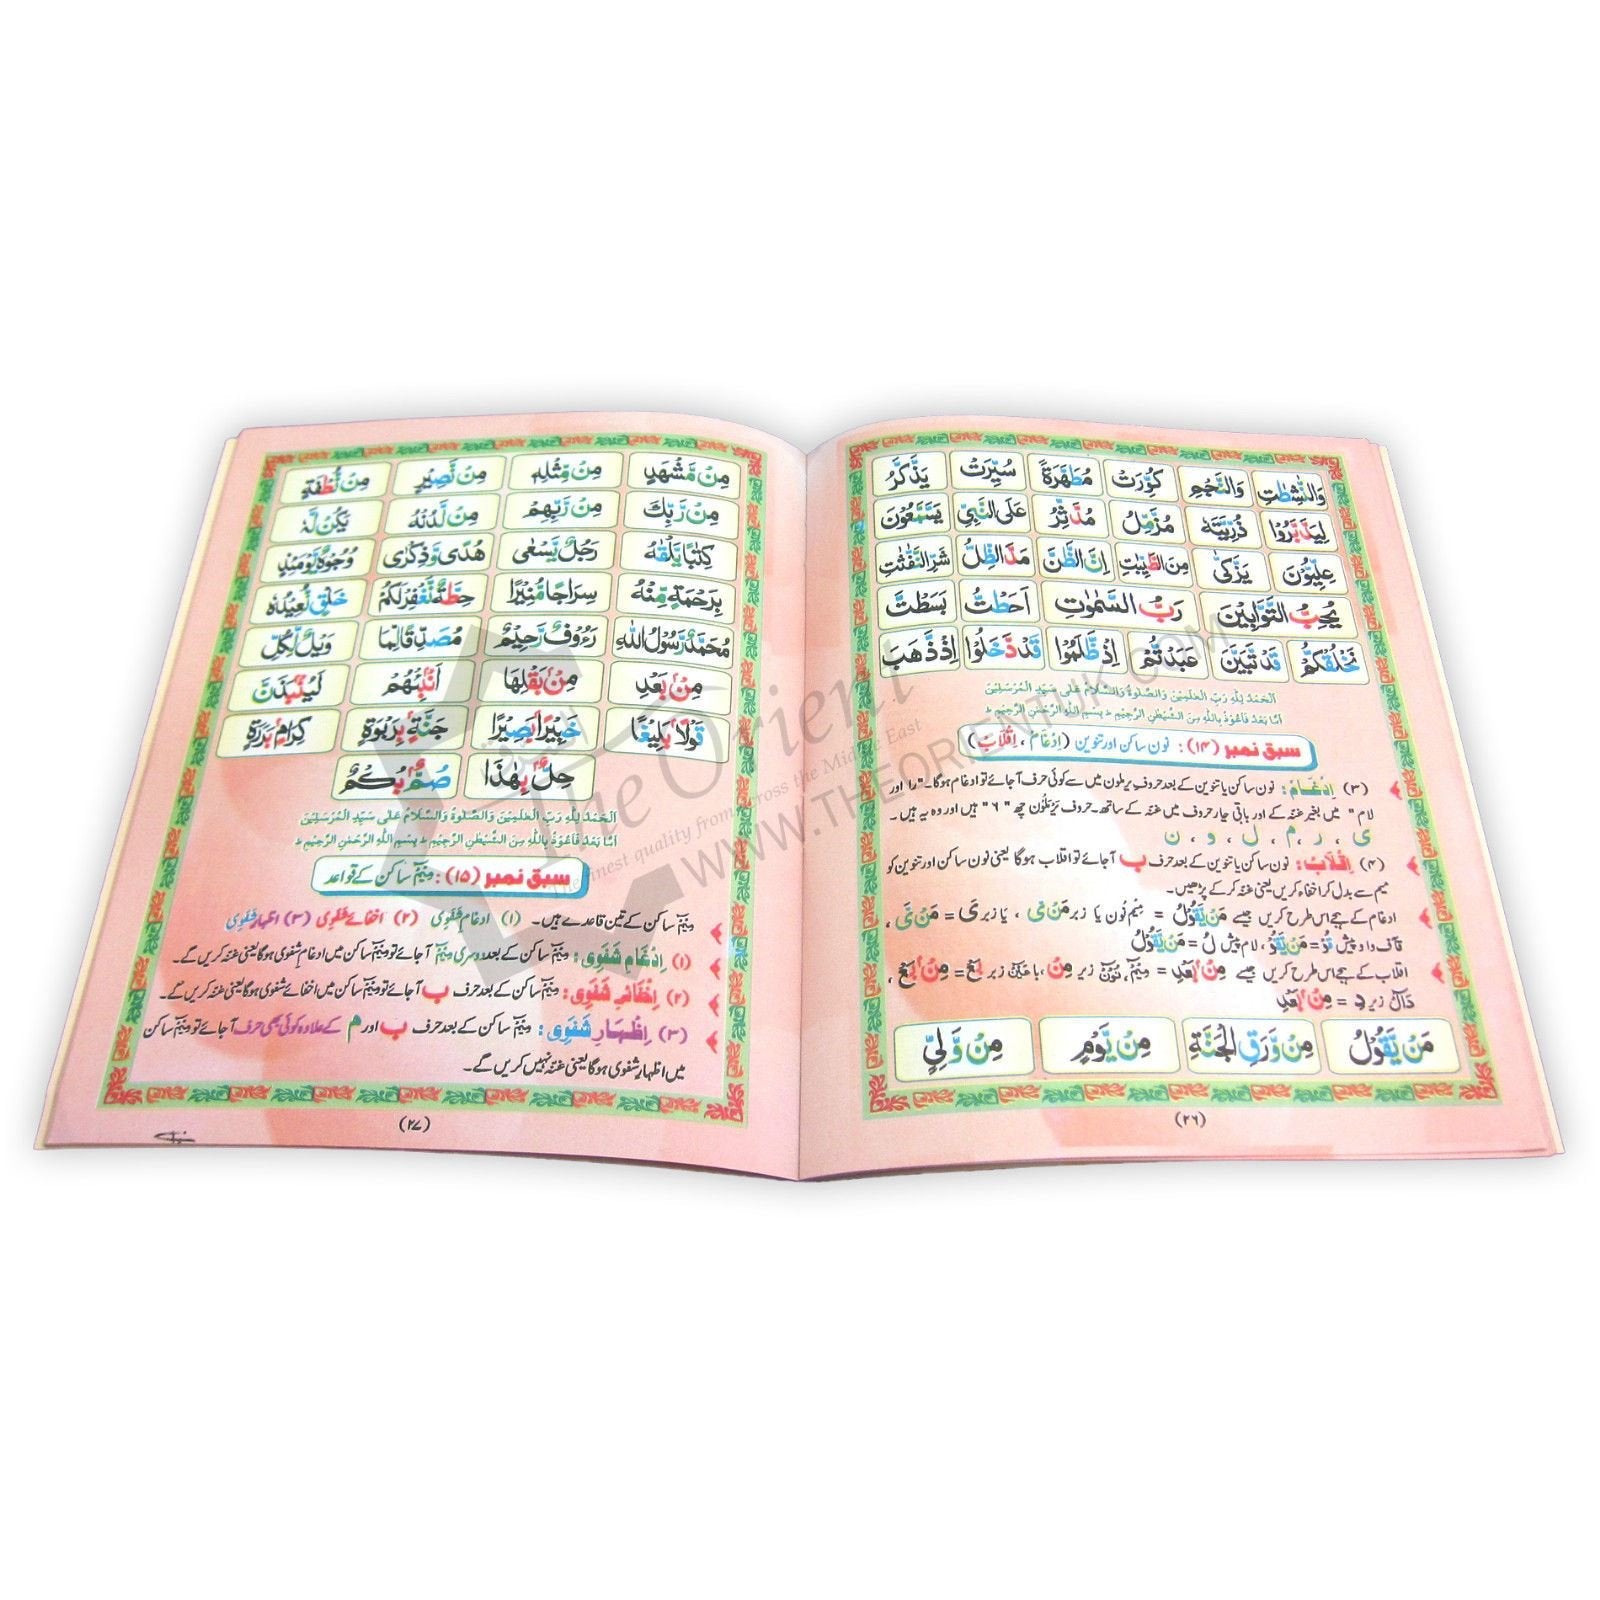 وَالنّٰشِطٰتِ وَالنَّجْمِ كُوِّرَتْ مُطَهَّرَةً سُيِّرَتْ يَذَّكَّرُ
لِيَدَّبَّرُوْا ذُرِّيَّتَهٗ مُزَّمِّلُ مُدَّثِّرُ عَلَى النَّبِيِّ يَسَّمَّعُوْنَ
عِلِّيُّوْنَ يَزَّكّٰى مِنَ الطَّيِّبٰتِ اِنَّ الظَّنَّ مَدَّ الظِّلَّ شَرِّ النَّفّٰثٰتِ
يُحِبُّ التَّوَّابِيْنَ رَبُّ السَّمٰوٰتِ اَحَطْتُّ بَسَطْتَّ
نَخْلُقْكُّمْ قَدْ تَّبَيَّنَ عَبَدْتُّمْ اِذْ ظَّلَمُوْا قَدْ دَّخَلُوْا اِذْ ذَّهَبَ
اَلْحَمْدُ لِلّٰهِ رَبِّ الْعٰلَمِيْنَ وَالصَّلٰوةُ وَالسَّلَامُ عَلٰى سَيِّدِ الْمُرْسَلِيْنَ
اَمَّا بَعْدُ فَاَعُوْذُ بِاللّٰهِ مِنَ الشَّيْطٰنِ الرَّجِيْمِ ط بِسْمِ اللّٰهِ الرَّحْمٰنِ الرَّحِيْمِ ط
سبق نمبر (۱۴): نون ساکن اور تنوین (اِدْغَام ، اِقْلَاب)
(۳) اِدْغَام: نون ساکن یا تنوین کے بعد حروف یرملون میں سے کوئی حرف آجائے تو ادغام ہوگا۔ "را اور
لام" میں بغیر غنہ کے اور باقی چار حروف میں غنہ کے ساتھ۔ حروف یَرْمَلُوْن چھ "۶" ہیں اور وہ یہ ہیں۔
ی ، ر ، م ، ل ، و ، ن
(۴) اِقْلَاب: نون ساکن یا تنوین کے بعد حرف ب آجائے تو اقلاب ہوگا یعنی نون ساکن اور تنوین کو
میم سے بدل کر اخفاء کریں یعنی غنہ کر کے پڑھیں۔
ادغام کے ہجے اس طرح کریں جیسے مَنْ يَّقُوْلُ = مِیْم نُون یا زبر مَنْ يَّ ، یا زبر يَ = مَنْ يَّ ،
قَاف واو پیش قُوْ = مَنْ يَّقُوْ ، لام پیش لُ = مَنْ يَّقُوْلُ
اقلاب کے ہجے اس طرح کریں جیسے مِنْۢ بَعْدِ = مِیْمْ ، نُوْنْ زیر مِنْۢ ، با عَیْنْ زبر بَعْ = مِنْۢ بَعْ ،
دَالْ زیر دِ = مِنْۢ بَعْدِ
مَنْ يَّقُوْلُ مِنْ وَّرَقِ الْجَنَّةِ مِنْ يَّوْمٍ مِنْ وَّلِيٍّ
(۲۶)
مِنْ مَّشْهَدِ مِنْ مِّثْلِهٖ مِنْ نَّصِيْرٍ مِنْ نُّطْفَةٍ
مِنْ رَّبِّكَ مِنْ رَّبِّهِمْ مِنْ لَّدُنْهُ يَكُنْ لَّهٗ
كِتٰبًا يَّلْقٰىهُ رَجُلٌ يَّسْعٰى هُدًى وَّذِكْرٰى وُجُوْهٌ يَّوْمَئِذٍ
بِرَحْمَةٍ مِّنْهُ سِرَاجًا مُّنِيْرًا حِطَّةٌ نَّغْفِرْ لَكُمْ خَلْقٍ نُّعِيْدُهٗ
مُحَمَّدٌ رَّسُوْلُ اللّٰهِ رَءُوْفٌ رَّحِيْمٌ مُصَدِّقًا لِّمَا وَيْلٌ لِّكُلِّ
مِنْۢ بَعْدِ مِنْۢ بَقْلِهَا اَنْۢبِئْهُمْ لَيُنْۢبَذَنَّ
قَوْلًاۢ بَلِيْغًا خَبِيْرًاۢ بَصِيْرًا جَنَّةٍۢ بِرَبْوَةٍ كِرَامٍۢ بَرَرَةٍ
حِلٌّۢ بِهٰذَا صُمٌّۢ بُكْمٌ
اَلْحَمْدُ لِلّٰهِ رَبِّ الْعٰلَمِيْنَ وَالصَّلٰوةُ وَالسَّلَامُ عَلٰى سَيِّدِ الْمُرْسَلِيْنَ
اَمَّا بَعْدُ فَاَعُوْذُ بِاللّٰهِ مِنَ الشَّيْطٰنِ الرَّجِيْمِ ط بِسْمِ اللّٰهِ الرَّحْمٰنِ الرَّحِيْمِ ط
سبق نمبر (۱۵): مِیْمْ ساکن کے قواعد
مِیْمْ ساکن کے تین قاعدے ہیں۔ (۱) ادغامِ شَفَوِی (۲) اخفائے شَفَوِی (۳) اظہارِ شَفَوِی
(۱) اِدْغَامِ شَفَوِی: مِیْمْ ساکن کے بعد دوسری مِیْمْ آجائے تو مِیْمْ ساکن میں ادغامِ شفوی ہوگا یعنی غنہ کریں گے۔
(۲) اِخْفَائے شَفَوِی: مِیْمْ ساکن کے بعد حرف ب آجائے تو مِیْمْ ساکن میں اخفائے شفوی ہوگا یعنی غنہ کریں گے۔
(۳) اِظْہَارِ شَفَوِی: مِیْمْ ساکن کے بعد حرف ب اور م کے علاوہ کوئی بھی حرف آجائے تو مِیْمْ ساکن
میں اظہارِ شفوی ہوگا یعنی غنہ نہیں کریں گے۔
(۲۷)
The Orient
The finest quality from across the Middle East
WWW.THEORIENTUK.COM